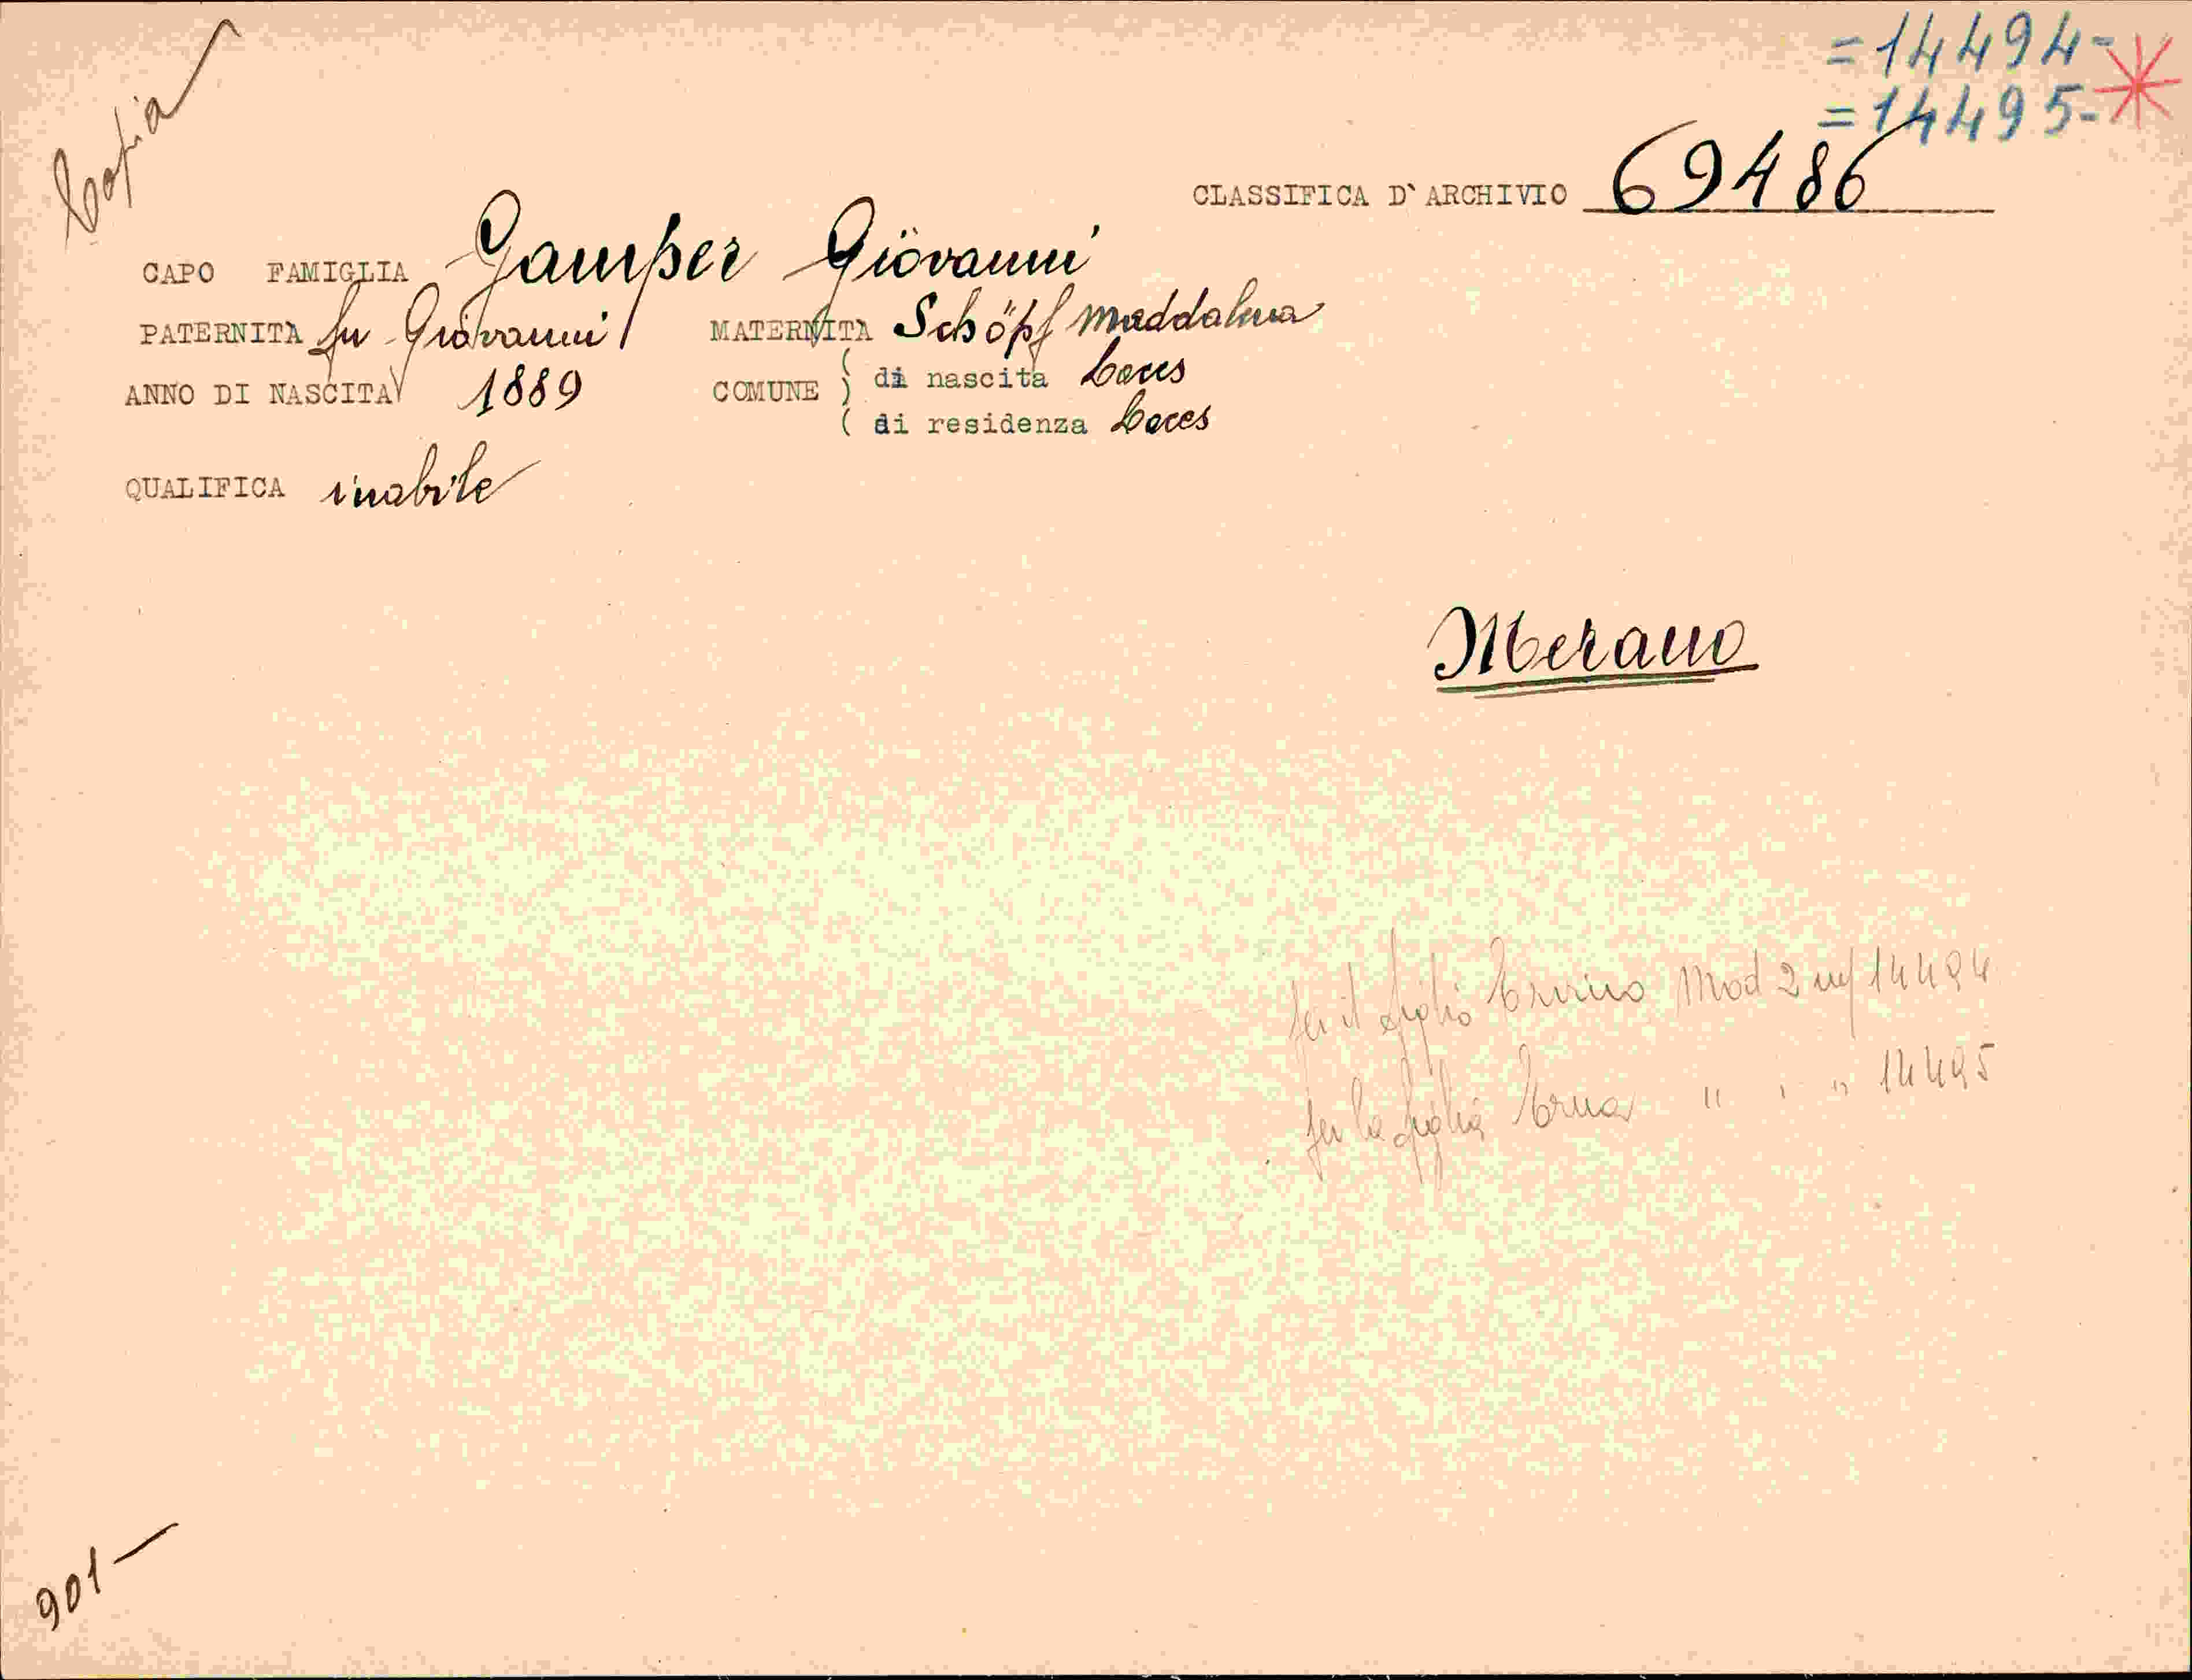 Copia
=14494-
=14495-
CLASSIFICA D'ARCHIVIO 69486
CAPO FAMIGLIA Gamper Giovanni
PATERNITÀ fu Giovanni MATERNITÀ Schöpf Maddalena
ANNO DI NASCITA 1889 COMUNE ( di nascita Laces
( di residenza Laces
QUALIFICA inabile
Merano
per il figlio Erwino Mod 2 nº 14494
per la figlia Erna " " " 14495
901-